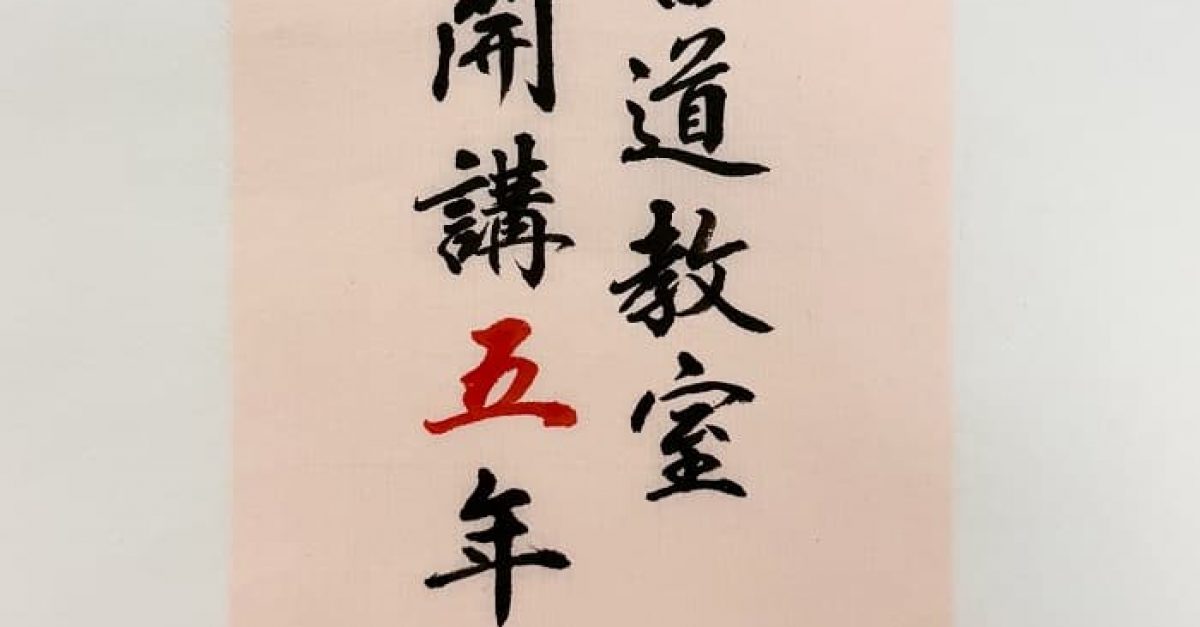 道教室
開講五年